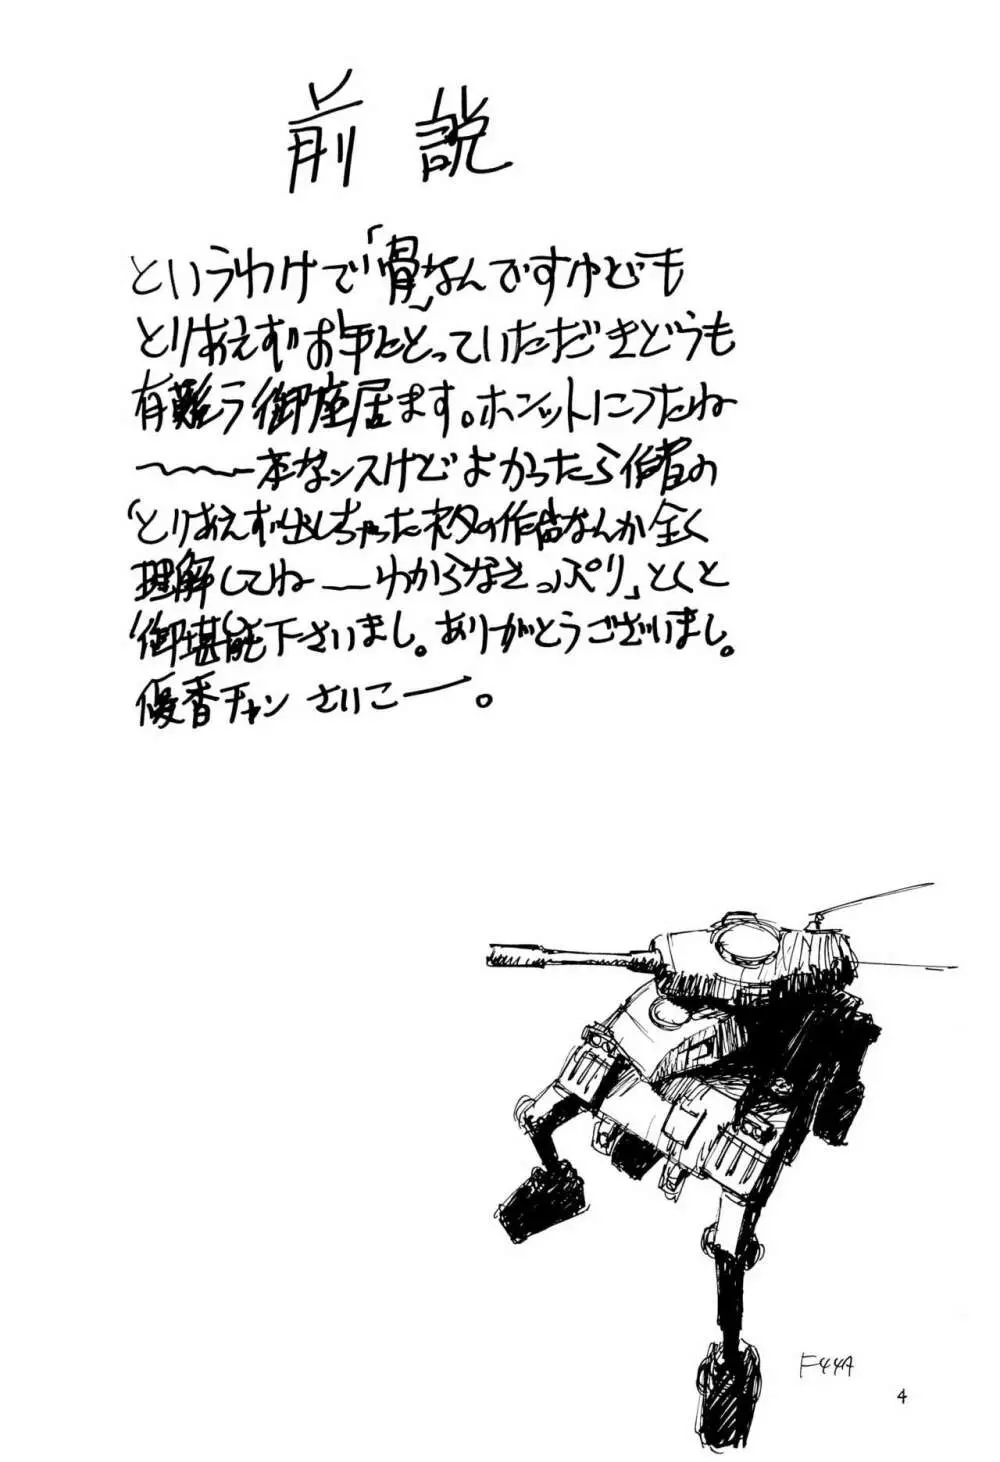 前説
というわけで「骨」なんですけどども
とりあえずお手にとっていただきどうも
有難う御座居ます。ホンットにつたね
〜〜〜本なンスけどよかったら作者の
「とりあえず出しちゃったネタの作品なんか全く
理解してね――わからなさっぷり」とくと
御堪能下さいまし。ありがとうございまし。
優香チャン さいこー。
F44A
4